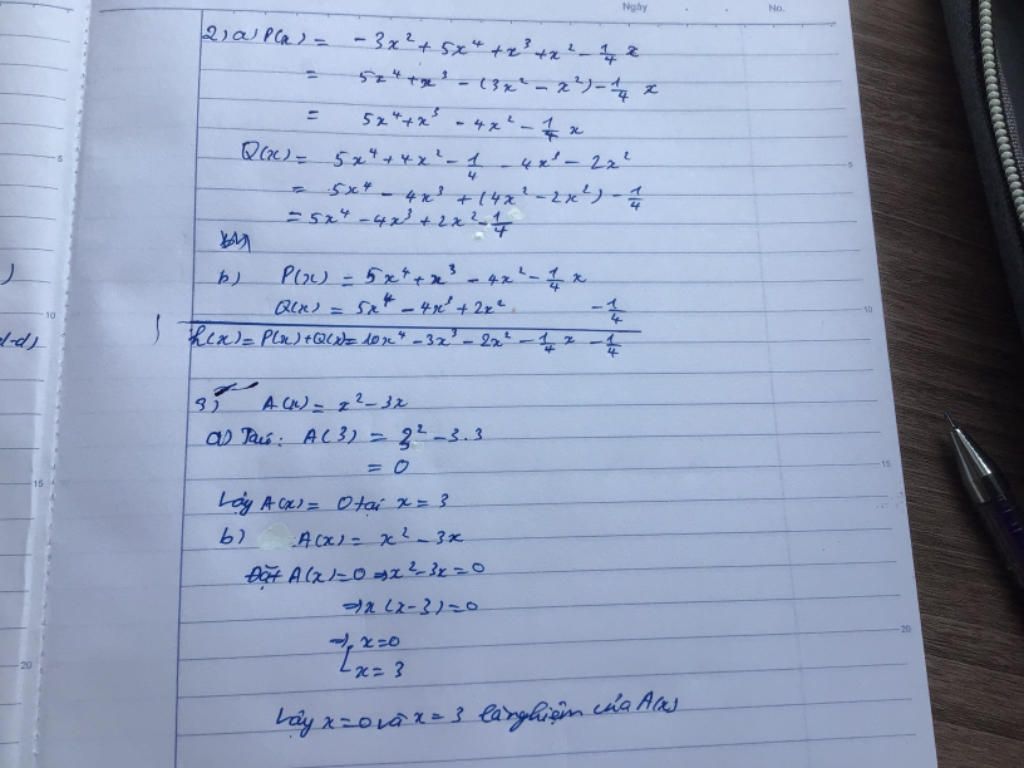 Ngày . . No.
2) a) P(x) = -3x² + 5x⁴ + x³ + x² - 1/4 x
= 5x⁴ + x³ - (3x² - x²) - 1/4 x
= 5x⁴ + x³ - 4x² - 1/4 x
Q(x) = 5x⁴ + 4x² - 1/4 - 4x³ - 2x²
= 5x⁴ - 4x³ + (4x² - 2x²) - 1/4
= 5x⁴ - 4x³ + 2x² - 1/4
b) P(x) = 5x⁴ + x³ - 4x² - 1/4 x
Q(x) = 5x⁴ - 4x³ + 2x² - 1/4
h(x) = P(x) + Q(x) = 10x⁴ - 3x³ - 2x² - 1/4 x - 1/4
3) A(x) = x² - 3x
a) A(3) = 3² - 3.3
= 0
Vậy A(x) = 0 tại x = 3
b) A(x) = x² - 3x
Đặt A(x) = 0 ⇒ x² - 3x = 0
⇒ x(x-3) = 0
⇒ [ x = 0
x = 3
Vậy x = 0 và x = 3 là nghiệm của A(x)
5
10
15
20
)
d-d)
10
15
20